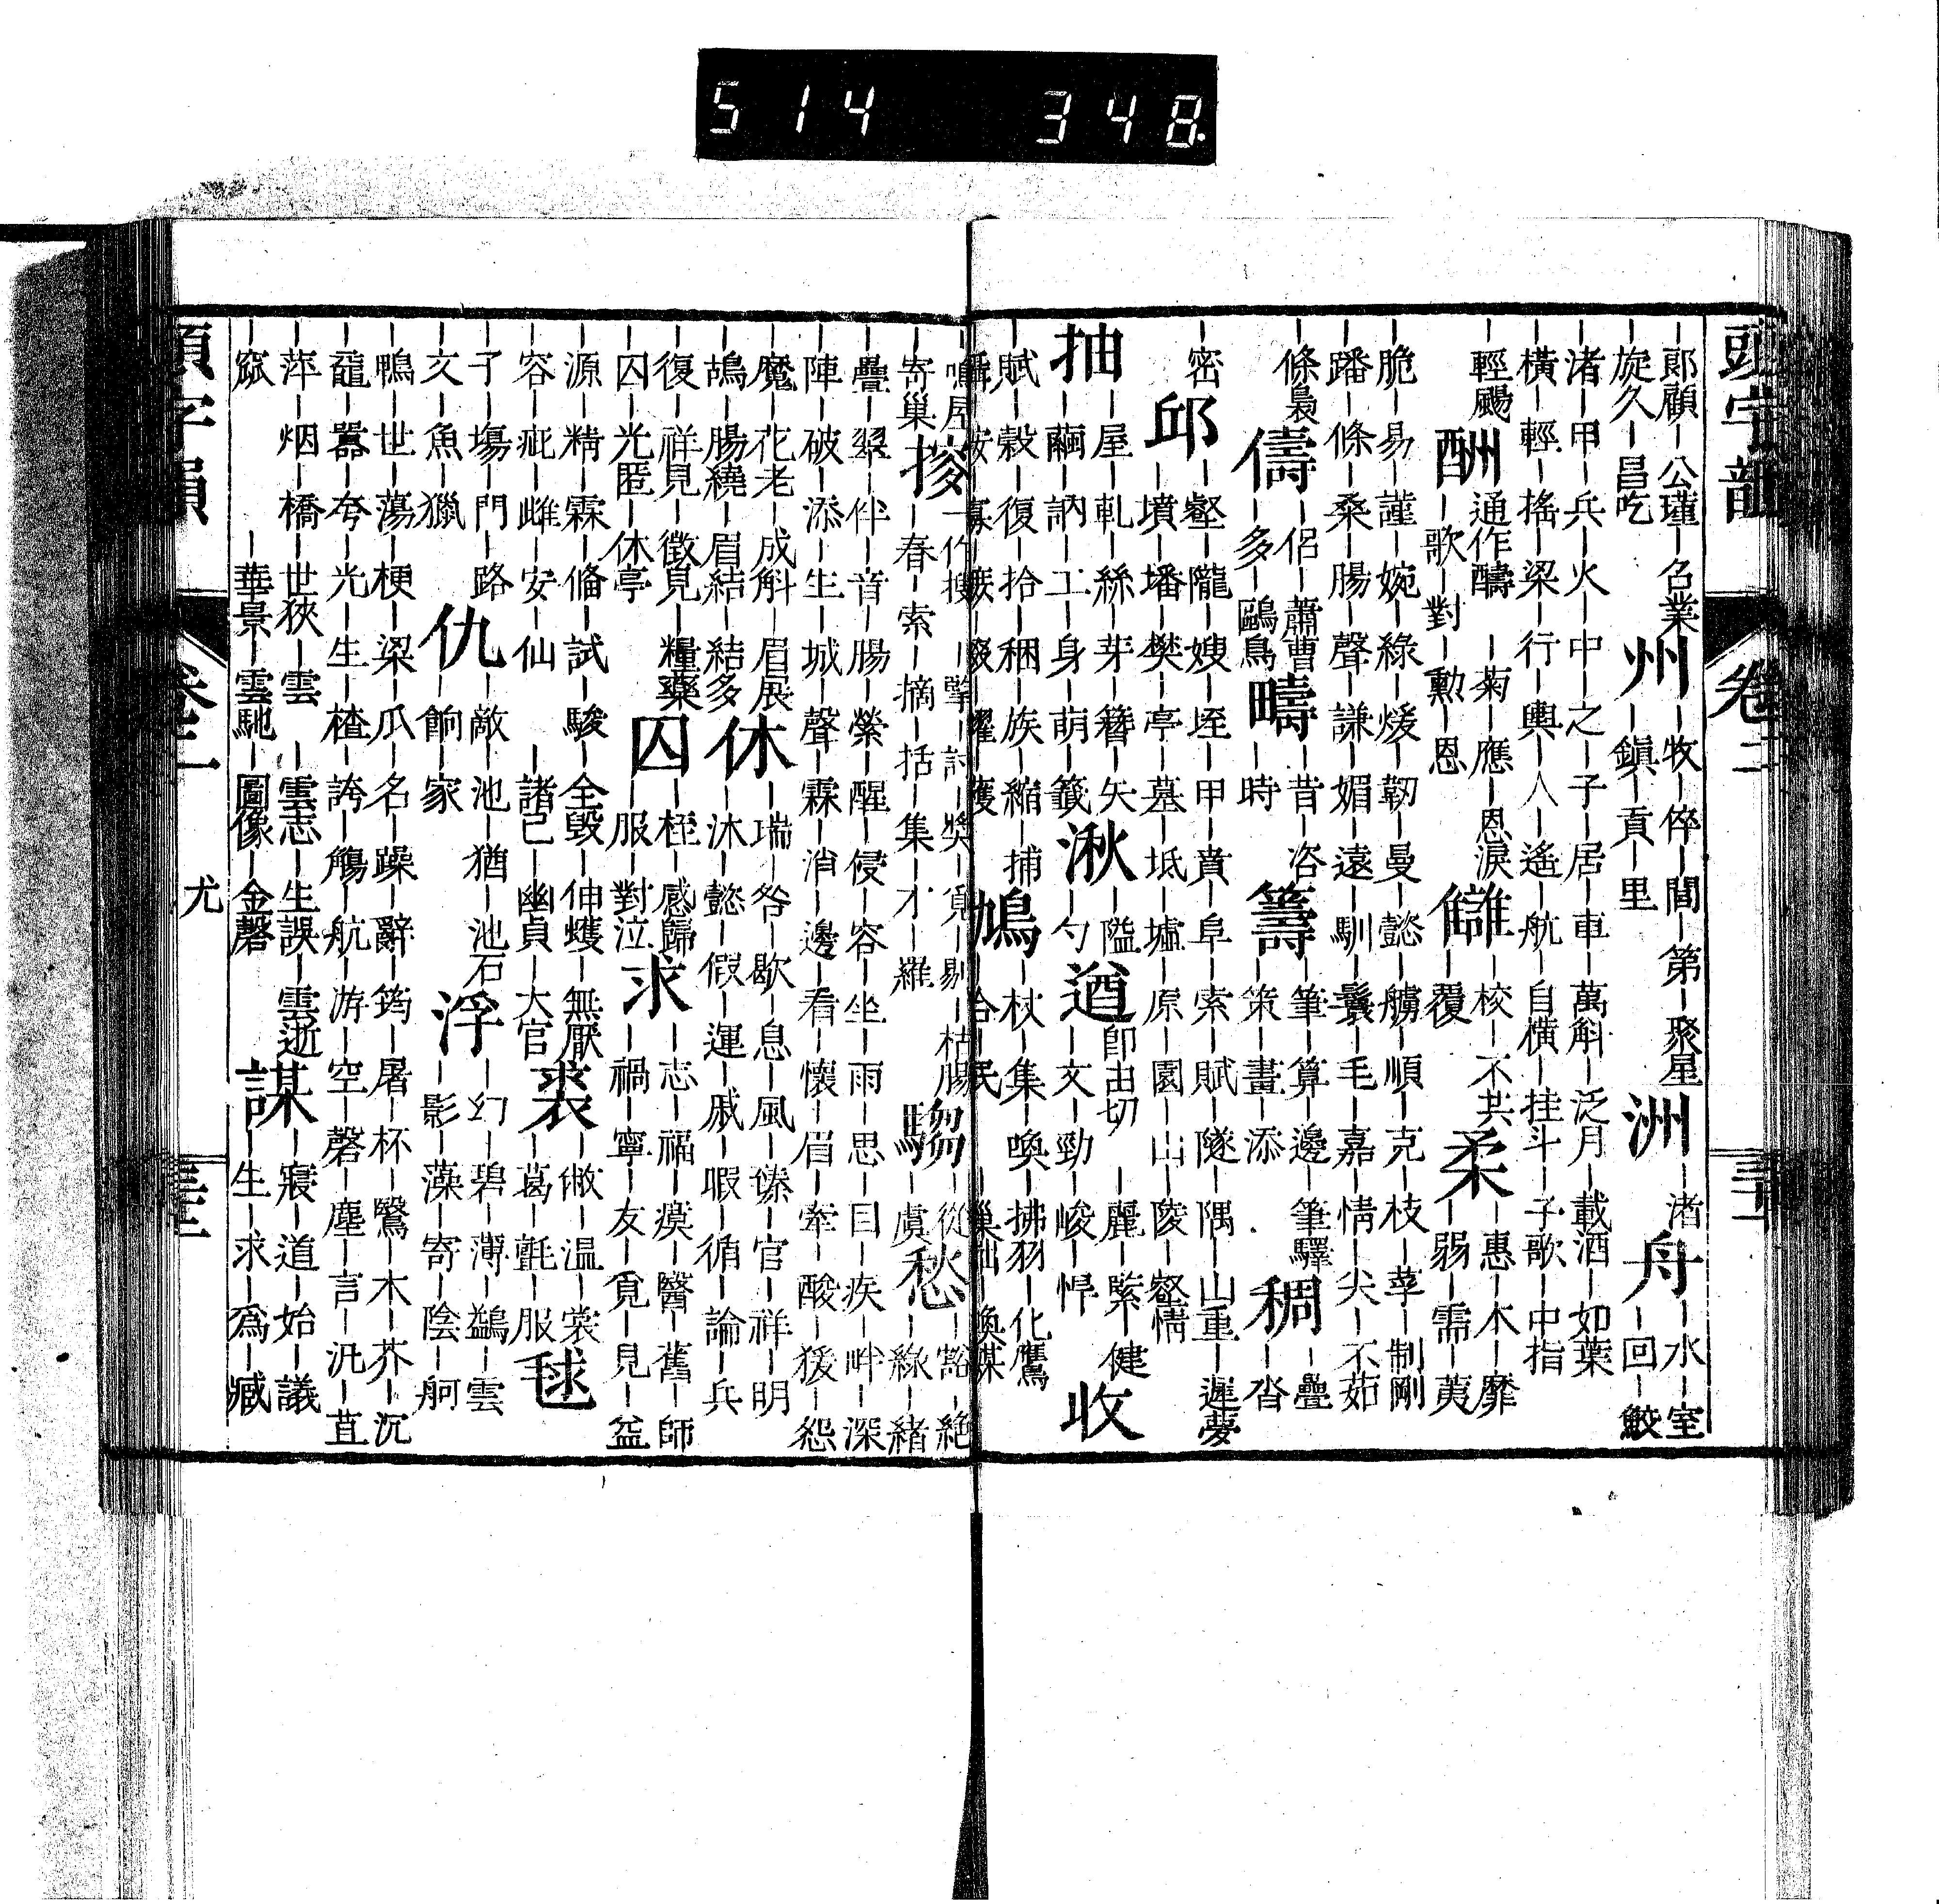 頭字韻 卷二 三十二
—郎顧—公瑾—名業 州 —牧—倅—閫—第—聚星 洲 —渚 舟 —水—室
—旋久—昌吃 —鎮—貢—里 —回—鮫
—渚—甲—兵—火—中—中之—子—居—車—萬斛—泛月—載酒—如葉
—橫—輕—搖—梁—行—輿—人—遙—航—自橫—挂斗—子歌—中指
—輕颺 酬 通作醻 —菊—應—恩淚 讎 —校—不共 柔 —惠—木—靡
—歌—對—勳—恩 —覆 —弱—需—荑
—脆—易—謹—婉—綠—煖—韌—曼—懿—艣—順—克—枝—莖—制剛
—蹯—條—桑—腸—聲—謙—媚—遠—馴—鬟—毛—嘉—情—尖—不茹
—條梟 儔 —侶—蕭曹 疇 —昔—咨 籌 —筆—算—邊—筆驛 稠 —疊
—多—鷗鳥 —時 —策—畫—添 —沓
—密 邱 —壑—隴—嫂—垤—甲—賁—阜—索—賦—隧—隅—山重—遲夢
—墳—墦—樊—亭—墓—坻—墟—原—園—山—陵—壑情
抽 —屋—軋—絲—芽—簪—矢 湫 —隘 遒 卽由切 —麗—緊—健 收
—繭—訥—工—身—萌—籤 —勺 —文—勁—峻—悍
—賦—穀—復—拾—稇—族—縮—捕 鳩 —杖—集—喚—拂羽—化鷹
搜 —枯腸 騶 —從 愁 —豁—絕
—寄巢 —春—索—摘—括—集—才—羅 —虞 —綠—緒
—疊—翠—伴—音—腸—縈—醒—侵—容—坐—雨—思—目—疾—畔—深
—陣—破—添—生—城—聲—霖—消—邊—看—懷—眉—牽—酸—猨—怨
—魔—花老—成斛—眉展 休 —瑞—咎—歇—息—風—傣—官—祥—明
—鴣—腸繞—眉結—結多 —沐—懿—假—運—戚—暇—循—論—兵
—復—祥見—徵見—糧藥 囚 —桎—感歸 求 —志—福—瘼—醫—舊—師
—囚—光匿—休亭 —服—對泣 —禍—寧—友—覓—見—益
—源—精—霖—脩—試—駿—全毀—伸蠖—無厭 裘 —敝—温—裳 毬
—容—疵—雌—安—仙—諸已—幽貞—大官 —葛—氈—服
—子—塲—門—路 仇 —敵—池—猶—池石 浮 —幻—碧—薄—鷁—雲
—文—魚—獵 —餉—家 —影—藻—寄—陰—舸
—鴨—世—蕩—梗—梁—瓜—名—躁—辭—筠—屠—杯—鷖—木—芥—沉
—囂—夸—光—生—楂—誇—觴—航—游—空—磬—塵—言—汎—苴
—萍—烟—橋—世狹—雲—雲志—生誤—雲逝 謀 —寢—道—始—議
—窳—華景—雲馳—圖像—金磬 —生—求—爲—臧
尤